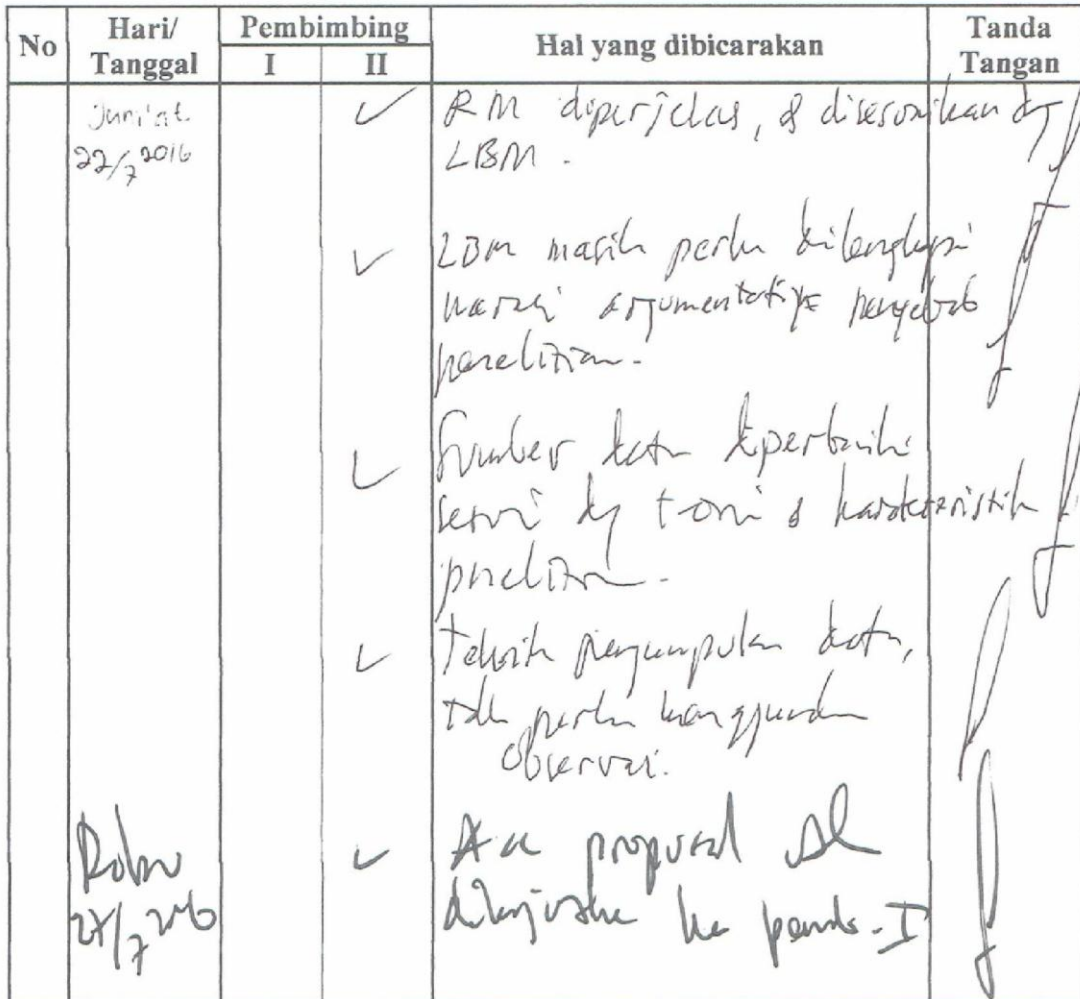 No Hari/ Tanggal Pembimbing I II Hal yang dibicarakan Tanda Tangan
Jum'at 22/7 2016 ✓ RM diperjelas, & disesuaikan dg
LBM.
✓ LBM masih perlu dilengkapi
narasi argumentatif penyebab
penelitian.
✓ Sumber data diperbaiki
sesuai dg & karakteristik
penelitian.
✓ Teknik pengumpulan data,
tdk perlu menggunakan
observasi.
Rabu 27/7 2016 ✓ Acc proposal
dilanjutke ke pemb. I